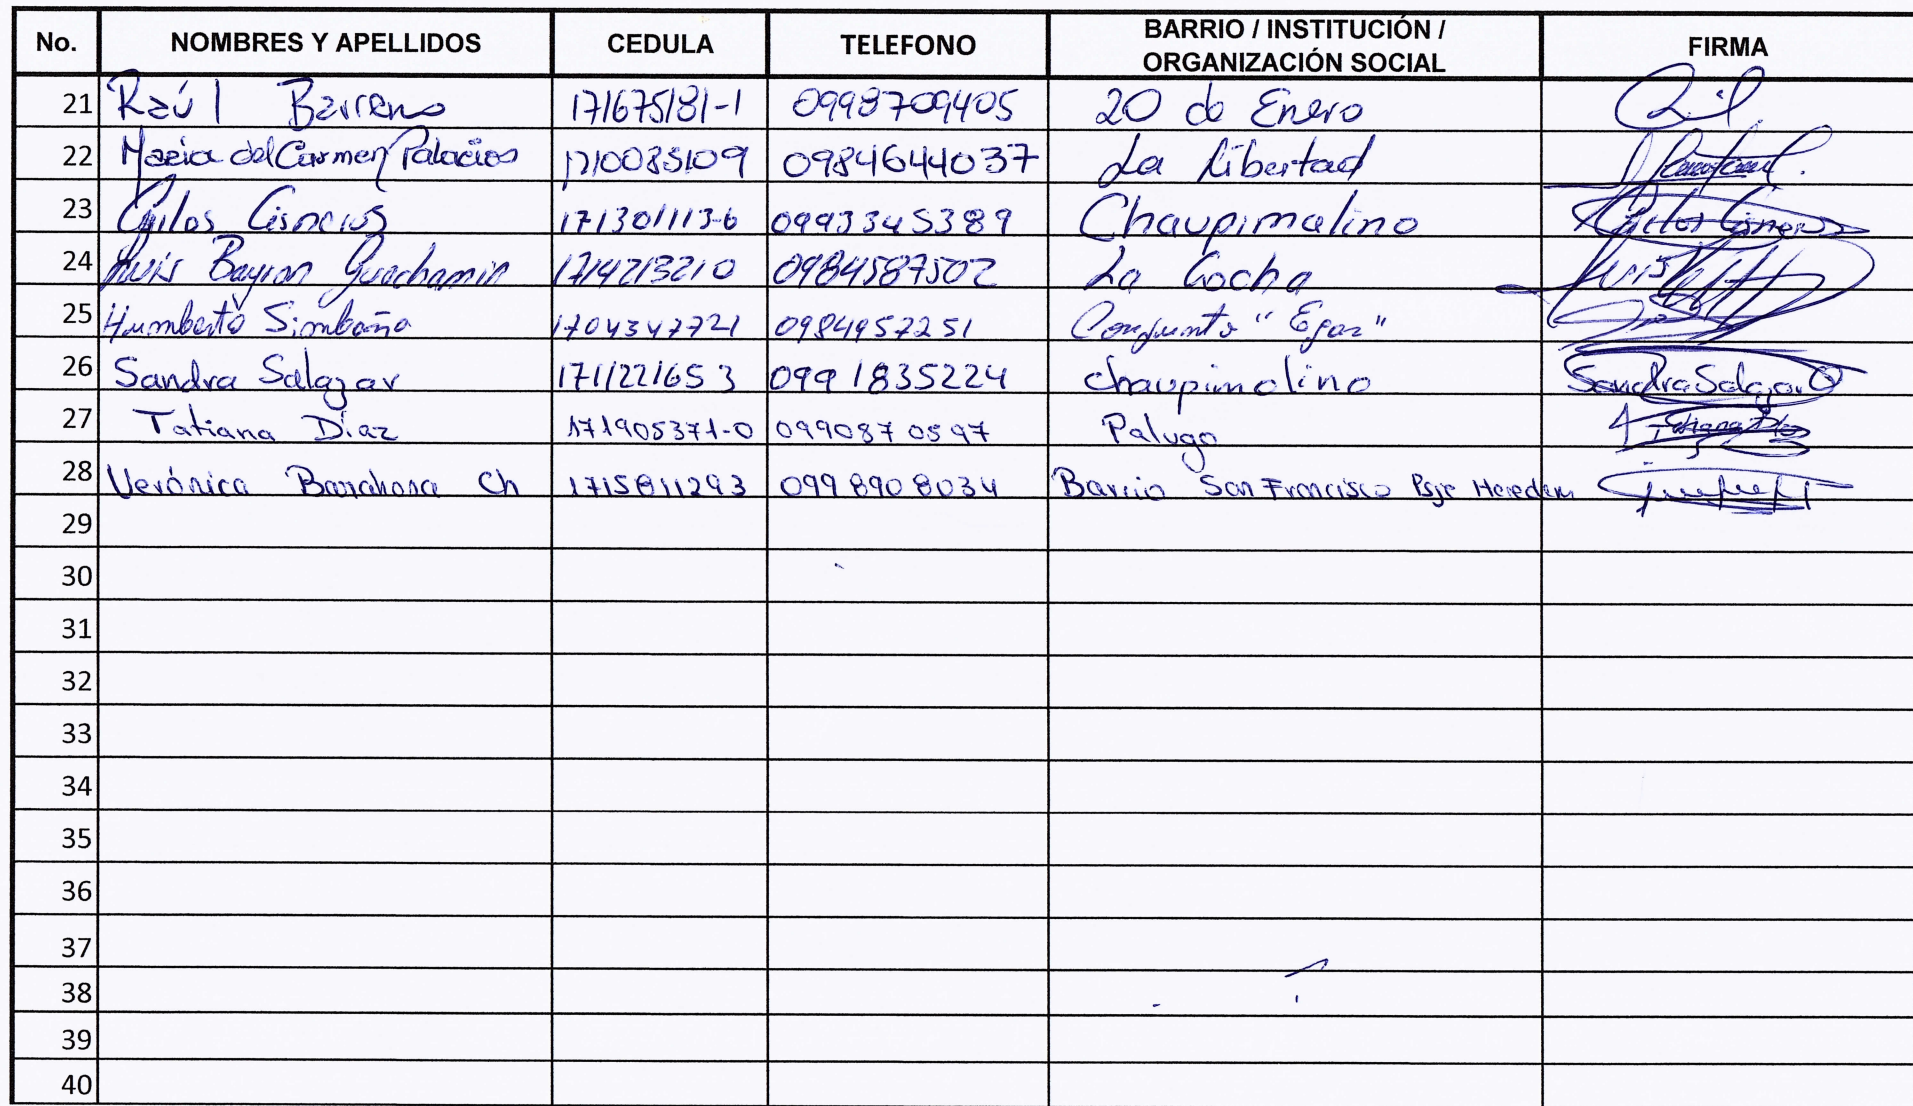 No. NOMBRES Y APELLIDOS CEDULA TELEFONO BARRIO / INSTITUCIÓN / ORGANIZACIÓN SOCIAL FIRMA
21 Raúl Barreno 171675181-1 0998709405 20 de Enero
22 Maria del Carmen Palacios 1710085109 0984644037 La Libertad
23 Cisneros 171301113-6 0993345389 Chaupimolino
24 Luis Bayron Guachamin 1714213210 0984587502 La Cocha
25 Humberto Simbaña 1704347721 0984957251 Conjunto
26 Sandra Salazar 1711221653 0991835224 Chaupimolino Sandra Salazar
27 Tatiana Díaz 171905371-0 0990870597 Palugo Tatiana Díaz
28 Verónica Barahona Ch 1715811293 0998908034 Barrio San Francisco Psje
29
30
31
32
33
34
35
36
37
38
39
40